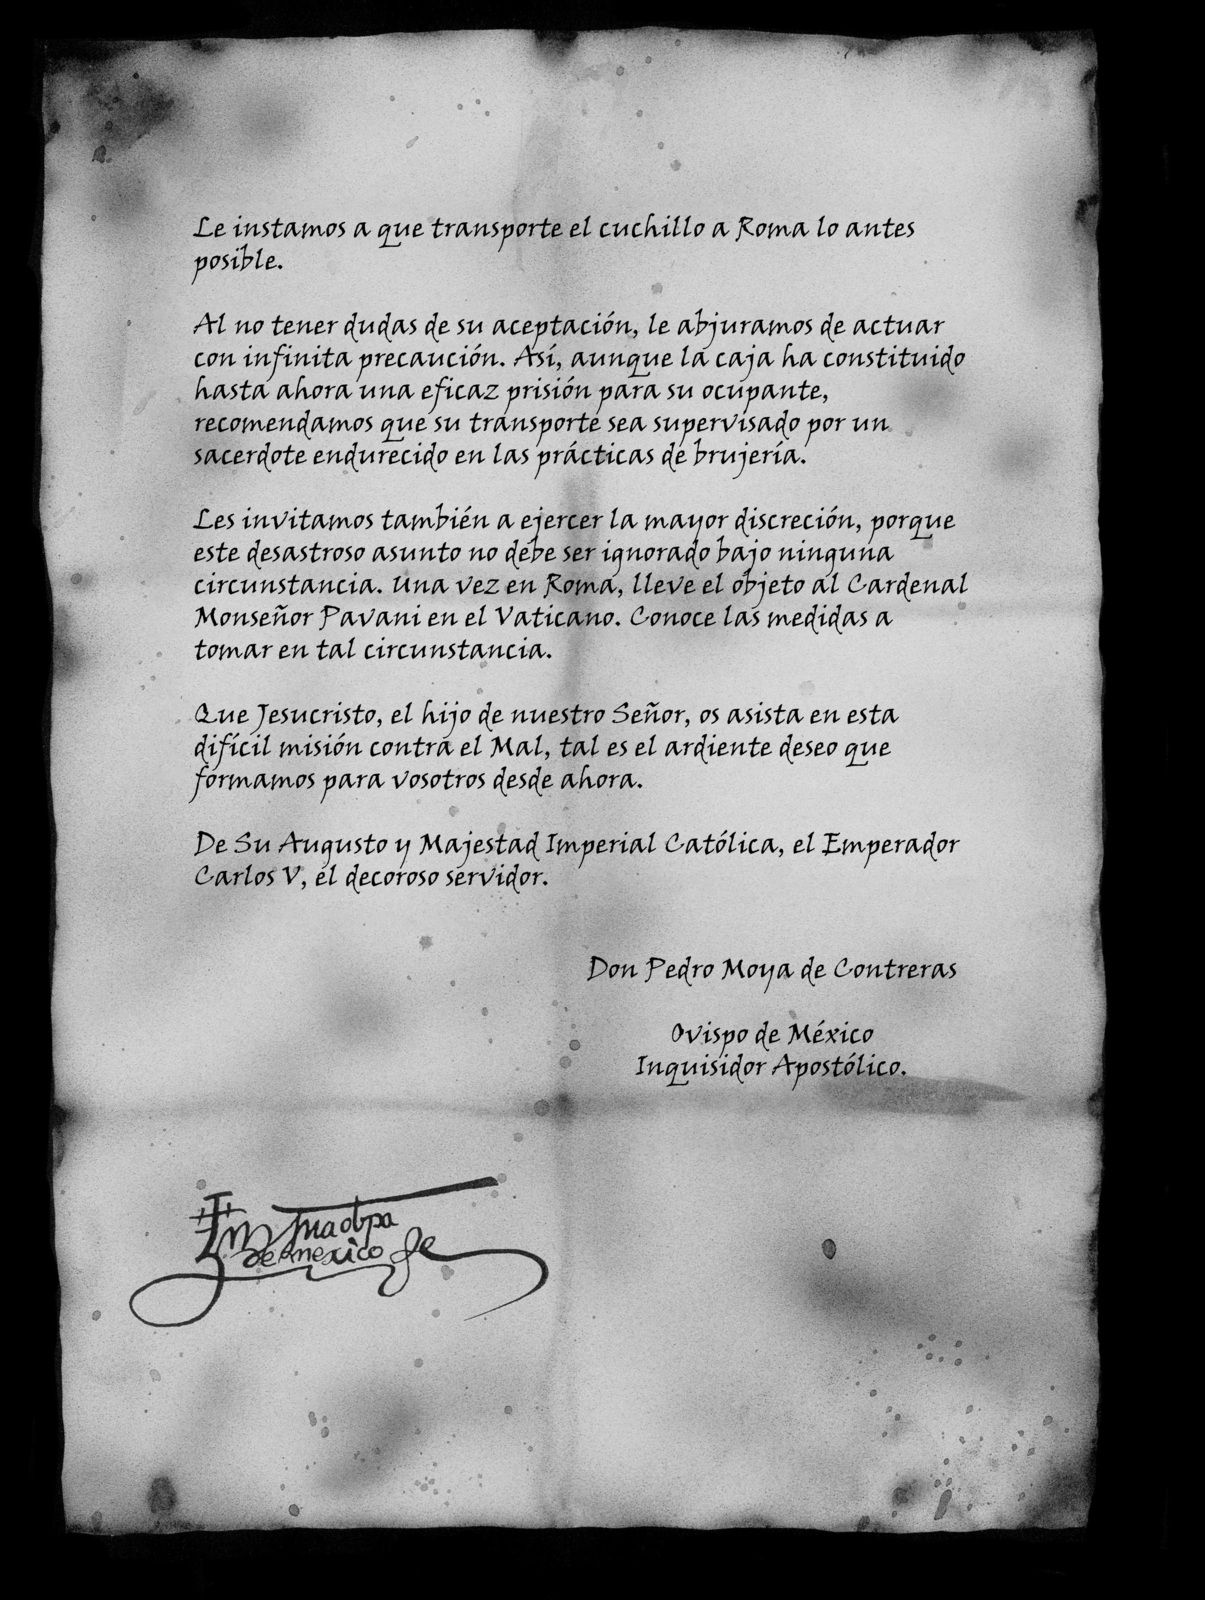 Le instamos a que transporte el cuchillo a Roma lo antes
posible.
Al no tener dudas de su aceptación, le abjuramos de actuar
con infinita precaución. Así, aunque la caja ha constituido
hasta ahora una eficaz prisión para su ocupante,
recomendamos que su transporte sea supervisado por un
sacerdote endurecido en las prácticas de brujería.
Les invitamos también a ejercer la mayor discreción, porque
este desastroso asunto no debe ser ignorado bajo ninguna
circunstancia. Una vez en Roma, lleve el objeto al Cardenal
Monseñor Pavani en el Vaticano. Conoce las medidas a
tomar en tal circunstancia.
Que Jesucristo, el hijo de nuestro Señor, os asista en esta
difícil misión contra el Mal, tal es el ardiente deseo que
formamos para vosotros desde ahora.
De Su Augusto y Majestad Imperial Católica, el Emperador
Carlos V, el decoroso servidor.
Don Pedro Moya de Contreras
Ovispo de México
Inquisidor Apostólico.
de mexico